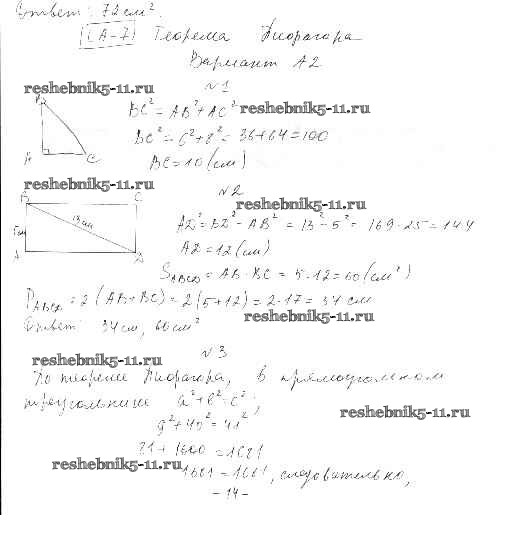 Ответ: 72 см².
СА-7 Теорема Пифагора
Вариант А2
reshebnik5-11.ru
№1
B
BC² = AB² + AC² reshebnik5-11.ru
BC² = 6² + 8² = 36+64=100
A C BC = 10 (см)
reshebnik5-11.ru
№2
B C reshebnik5-11.ru
5см 13 см AD² = BD² - AB² = 13² - 5² = 169-25=144
A D AD = 12 (см)
S ABCD = AB · BC = 5·12=60 (см²)
P ABCD = 2 (AB+BC) = 2(5+12) = 2·17 = 34 см
Ответ: 34 см, 60 см² reshebnik5-11.ru
№3
reshebnik5-11.ru
По теореме Пифагора, в прямоугольном
треугольнике a² + b² = c²; reshebnik5-11.ru
9² + 40² = 41²
81 + 1600 = 1681
reshebnik5-11.ru 1681 = 1681, следовательно,
- 14 -